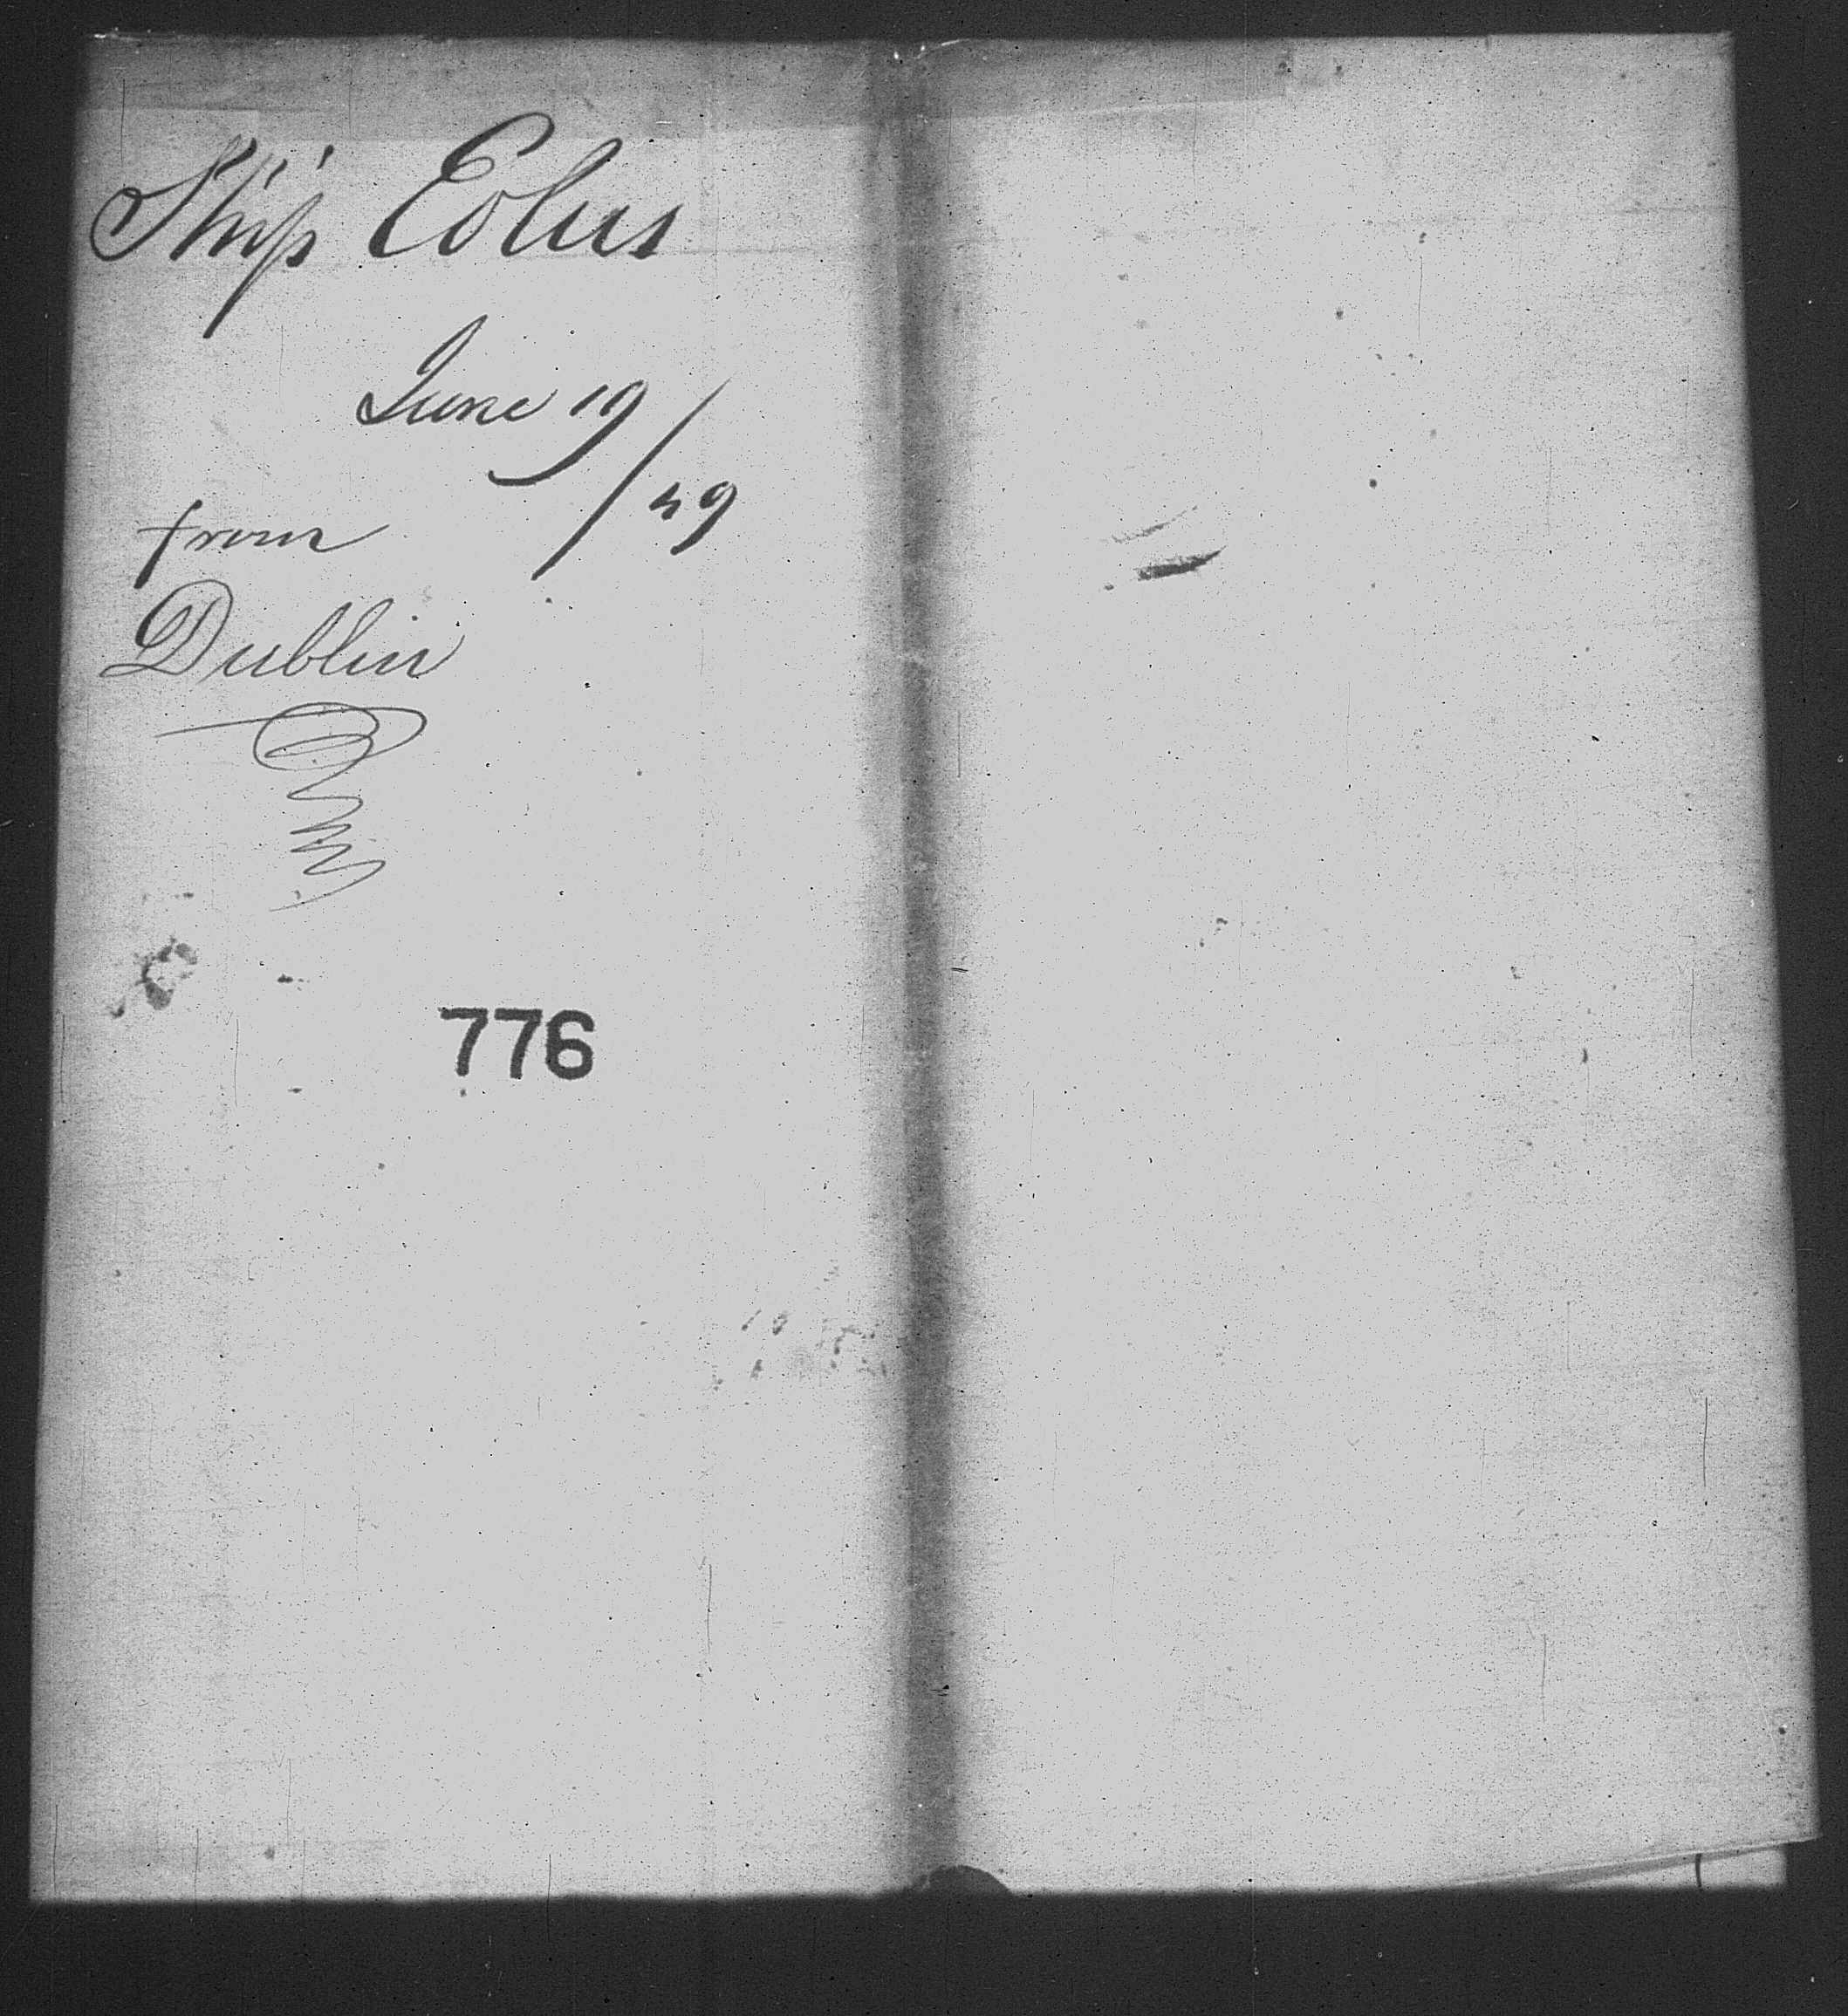 Ship Eolus
June 19/49
from
Dublin
776